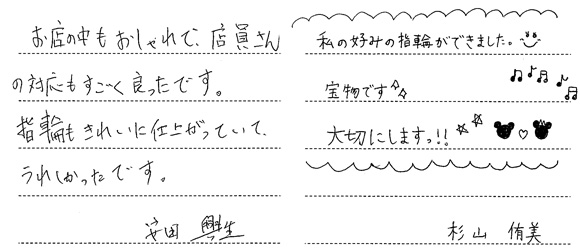 お店の中もおしゃれで、店員さん
の対応もすごく良ったです。
指輪もきれいに仕上がっていて、
うれしかったです。
安田
私の好みの指輪ができました。
宝物です
大切にしますっ!!
杉山 侑美